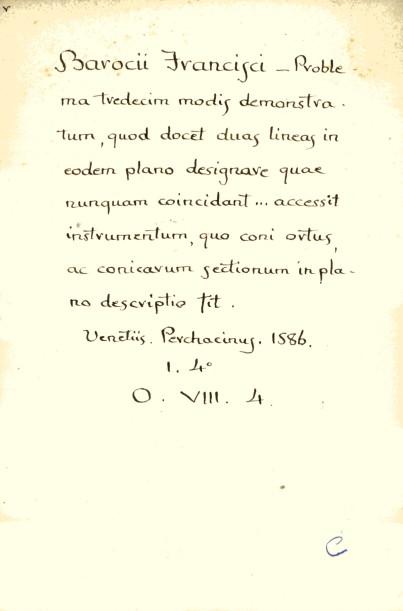 Barocii Francisci – Proble-
ma tredecim modis demonstra-
tum, quod docet duas lineas in
eodem plano designare quae
nunquam coincidant... accessit
instrumentum, quo coni ortus,
ac conicarum sectionum in pla-
no descriptio fit.
Venetiis. Perchacinus. 1586.
1. 4°
O. VIII. 4.
C